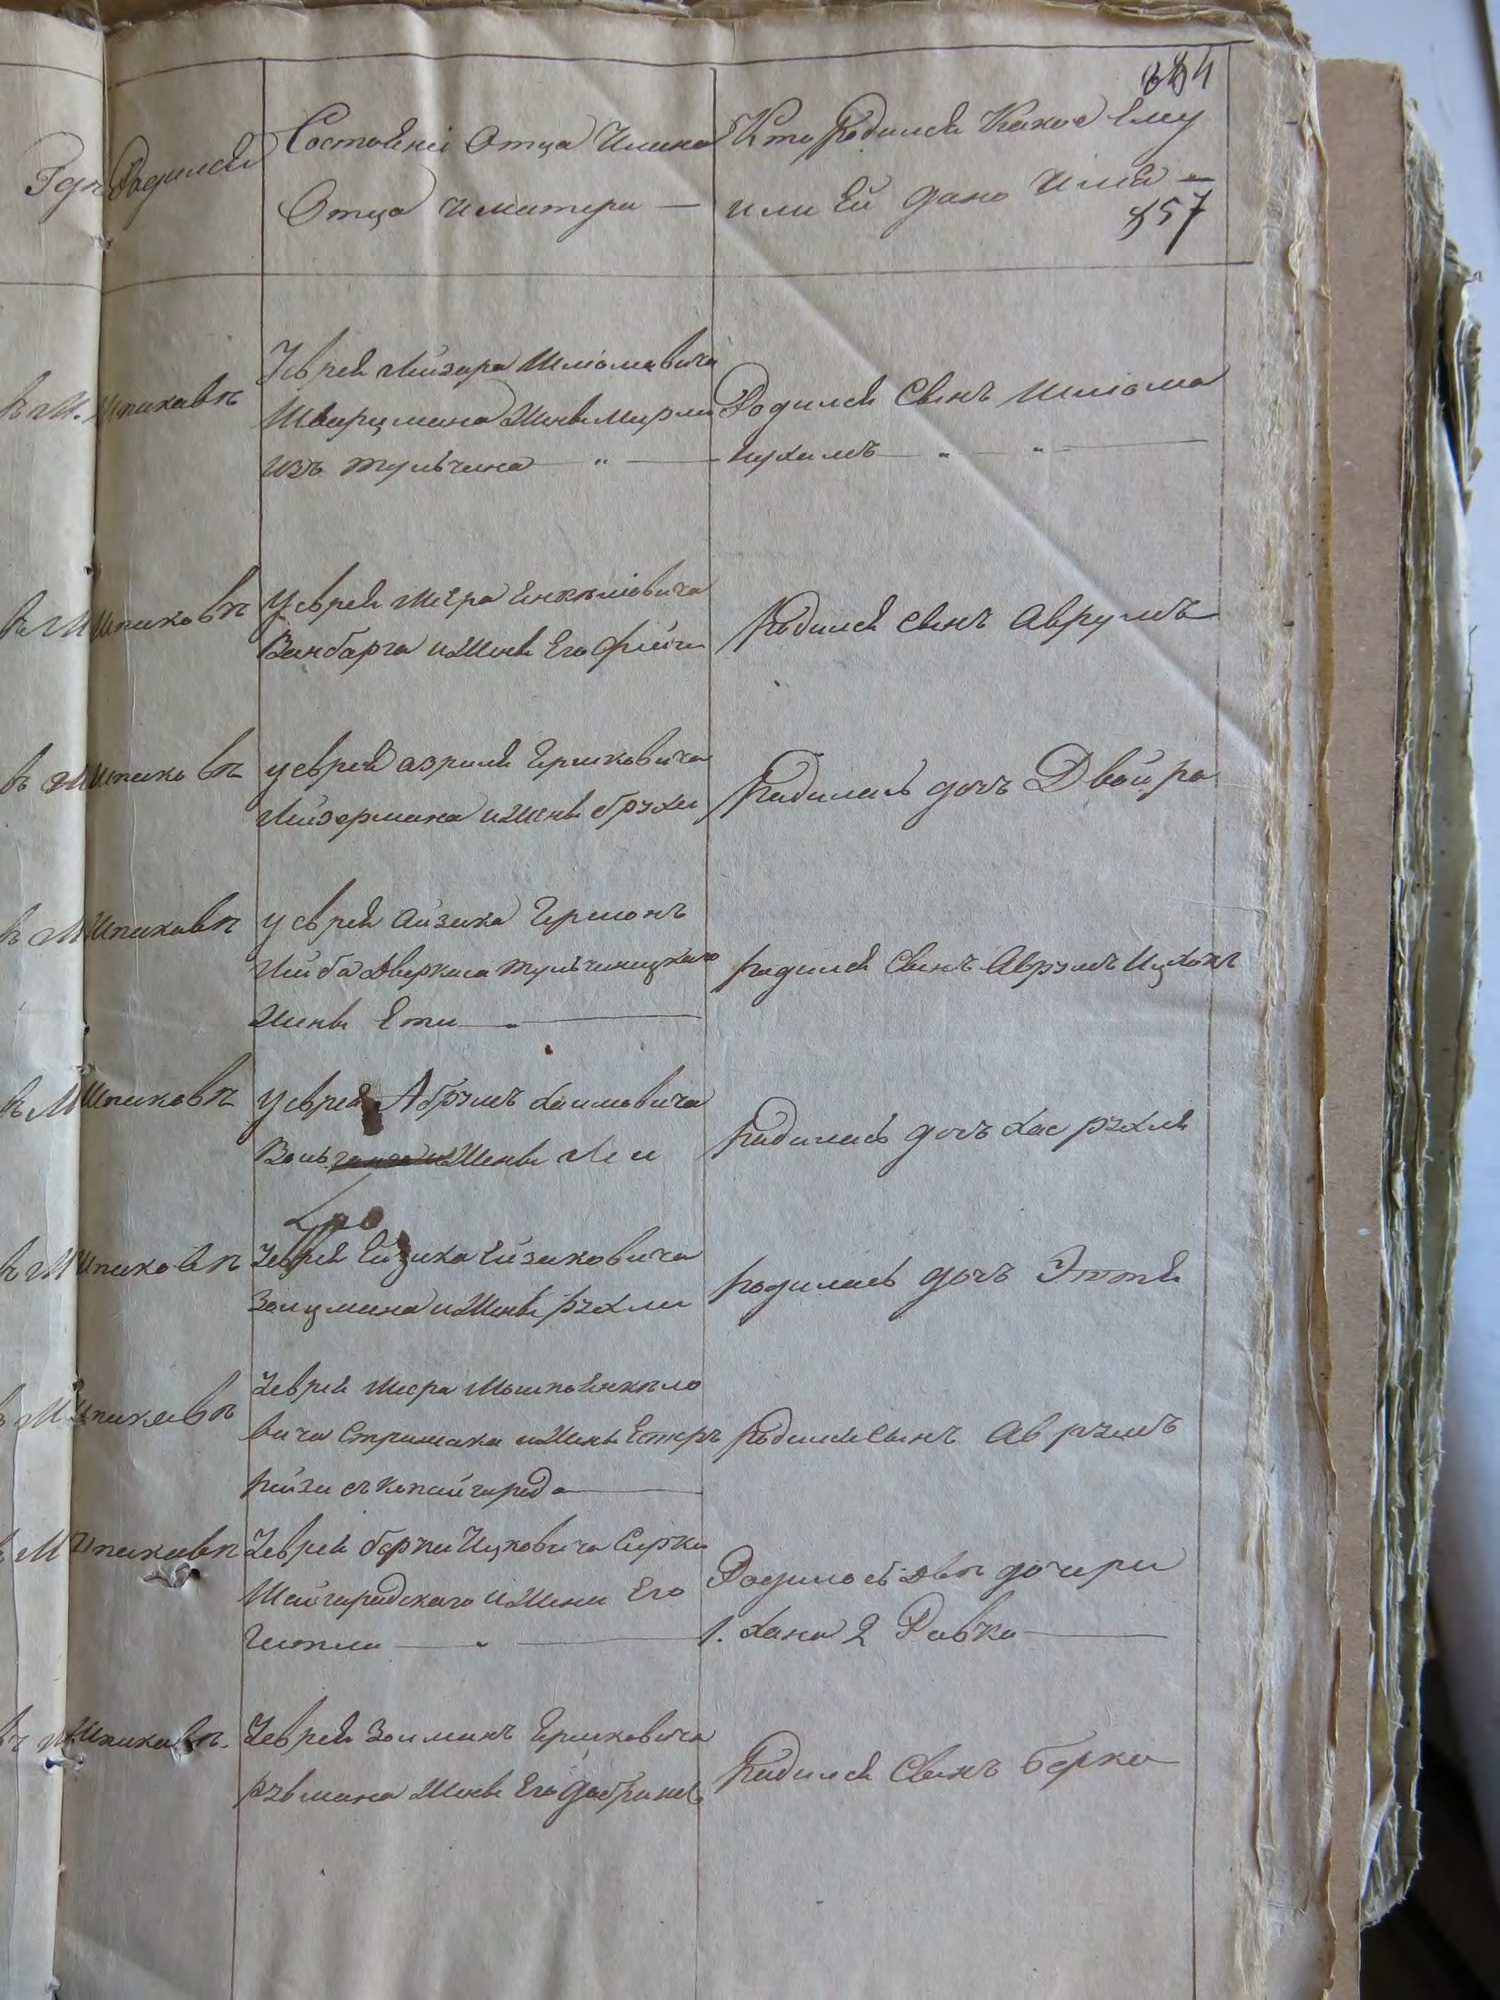 Гдѣ Родился
Состоянiе Отца Имена
Отца и матери —
Кто Родился Какое Ему
или Ей дано Имя —
857
въ М. Шпиковѣ
У еврея Лейзора Шлiомовича
Шварцмана Жены Мирли
изъ Тульчина — " —
Родился Сынъ Шлiома
Нухимъ — " — " —
въ М Шпиковѣ
У еврея Меера Енкелiовича
Ванбарга и Жены Его Фейги
Родился сынъ Аврумъ
въ М Шпиковѣ
у еврея Азриля Гершковича
Лейзермана и Жены брухи
Родилась дочь Двойра
въ М Шпиковѣ
у еврея Айзика Гершонъ
Лейба Дверкиса Тульчиницкаго
Жены Ети — " —
родился Сынъ Аврумъ Ицхокъ
въ М Шпиковѣ
у еврея Абрумъ Хаимовича
Жены Леи
Родилась дочь Хае рухля
въ М Шпиковѣ
У еврея Ейзика Ейзиковича
Залцмана и Жены рухли
родилась дочь Эття
въ М Шпиковѣ
У еврея Меера Мошко Енкело
вича Стримака и Жены Естръ
Рейзи съ Копайгорода —
Родился сынъ Аврумъ
въ М Шпиковѣ
У еврея берки Ицковича Сирки
Шайгородскаго и Жени Его
Гитли — " —
Родилось двѣ дочери
1. Хана 2 Равка —
въ М Шпиковѣ.
У еврея Золманъ Гершковича
рувмана Жены Его Добриси
Родился Сынъ Берко